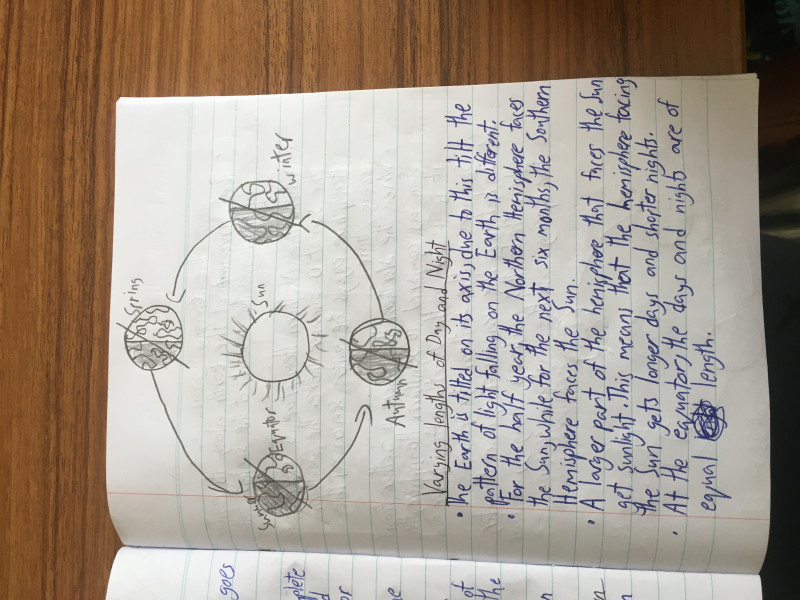 Spring
winter
Sun
Equator
Summer
Autumn
Varying lengths of Day and Night
• The Earth is tilted on its axis, due to this tilt the
pattern of light falling on the Earth is different.
• For the half year, the Northern Hemisphere faces
the Sun, while for the next six months, the Southern
Hemisphere faces the Sun.
• A larger part of the hemisphere that faces the Sun
get Sunlight. This means that the hemisphere facing
the Sun gets longer days and shorter nights.
• At the equator, the days and nights are of
equal length.
goes
plete
d
or
ne
of
the
n
n